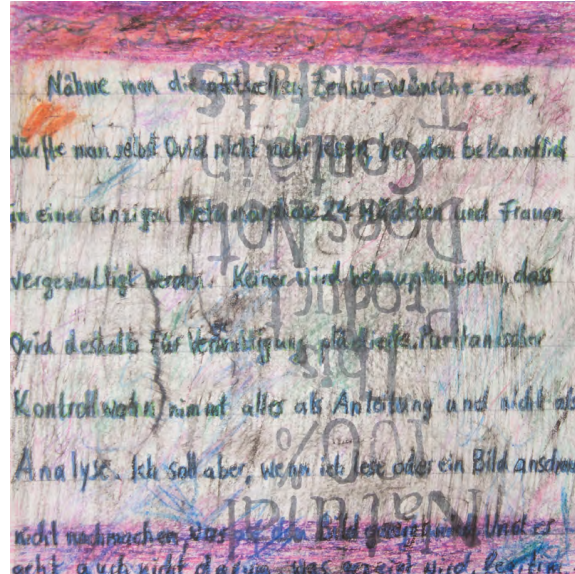 Nähme man die aktuellen Zensurwünsche ernst,
dürfte man selbst Ovid nicht mehr lesen, bei dem bekanntlich
in einer einzigen Metamorphose 24 Mädchen und Frauen
vergewaltigt werden. Keiner wird behaupten wollen, dass
Ovid deshalb für plädierte. Puritanischer
Kontrollwahn nimmt alles als Anleitung und nicht als
Analyse. Ich soll aber, wenn ich lese oder ein Bild anschaue
nicht nachmachen, was auf dem Bild gezeigt wird. Und es
geht auch nicht darum, was gezeigt wird, legitim
Natural
100%
This
Product
Does Not
Contain